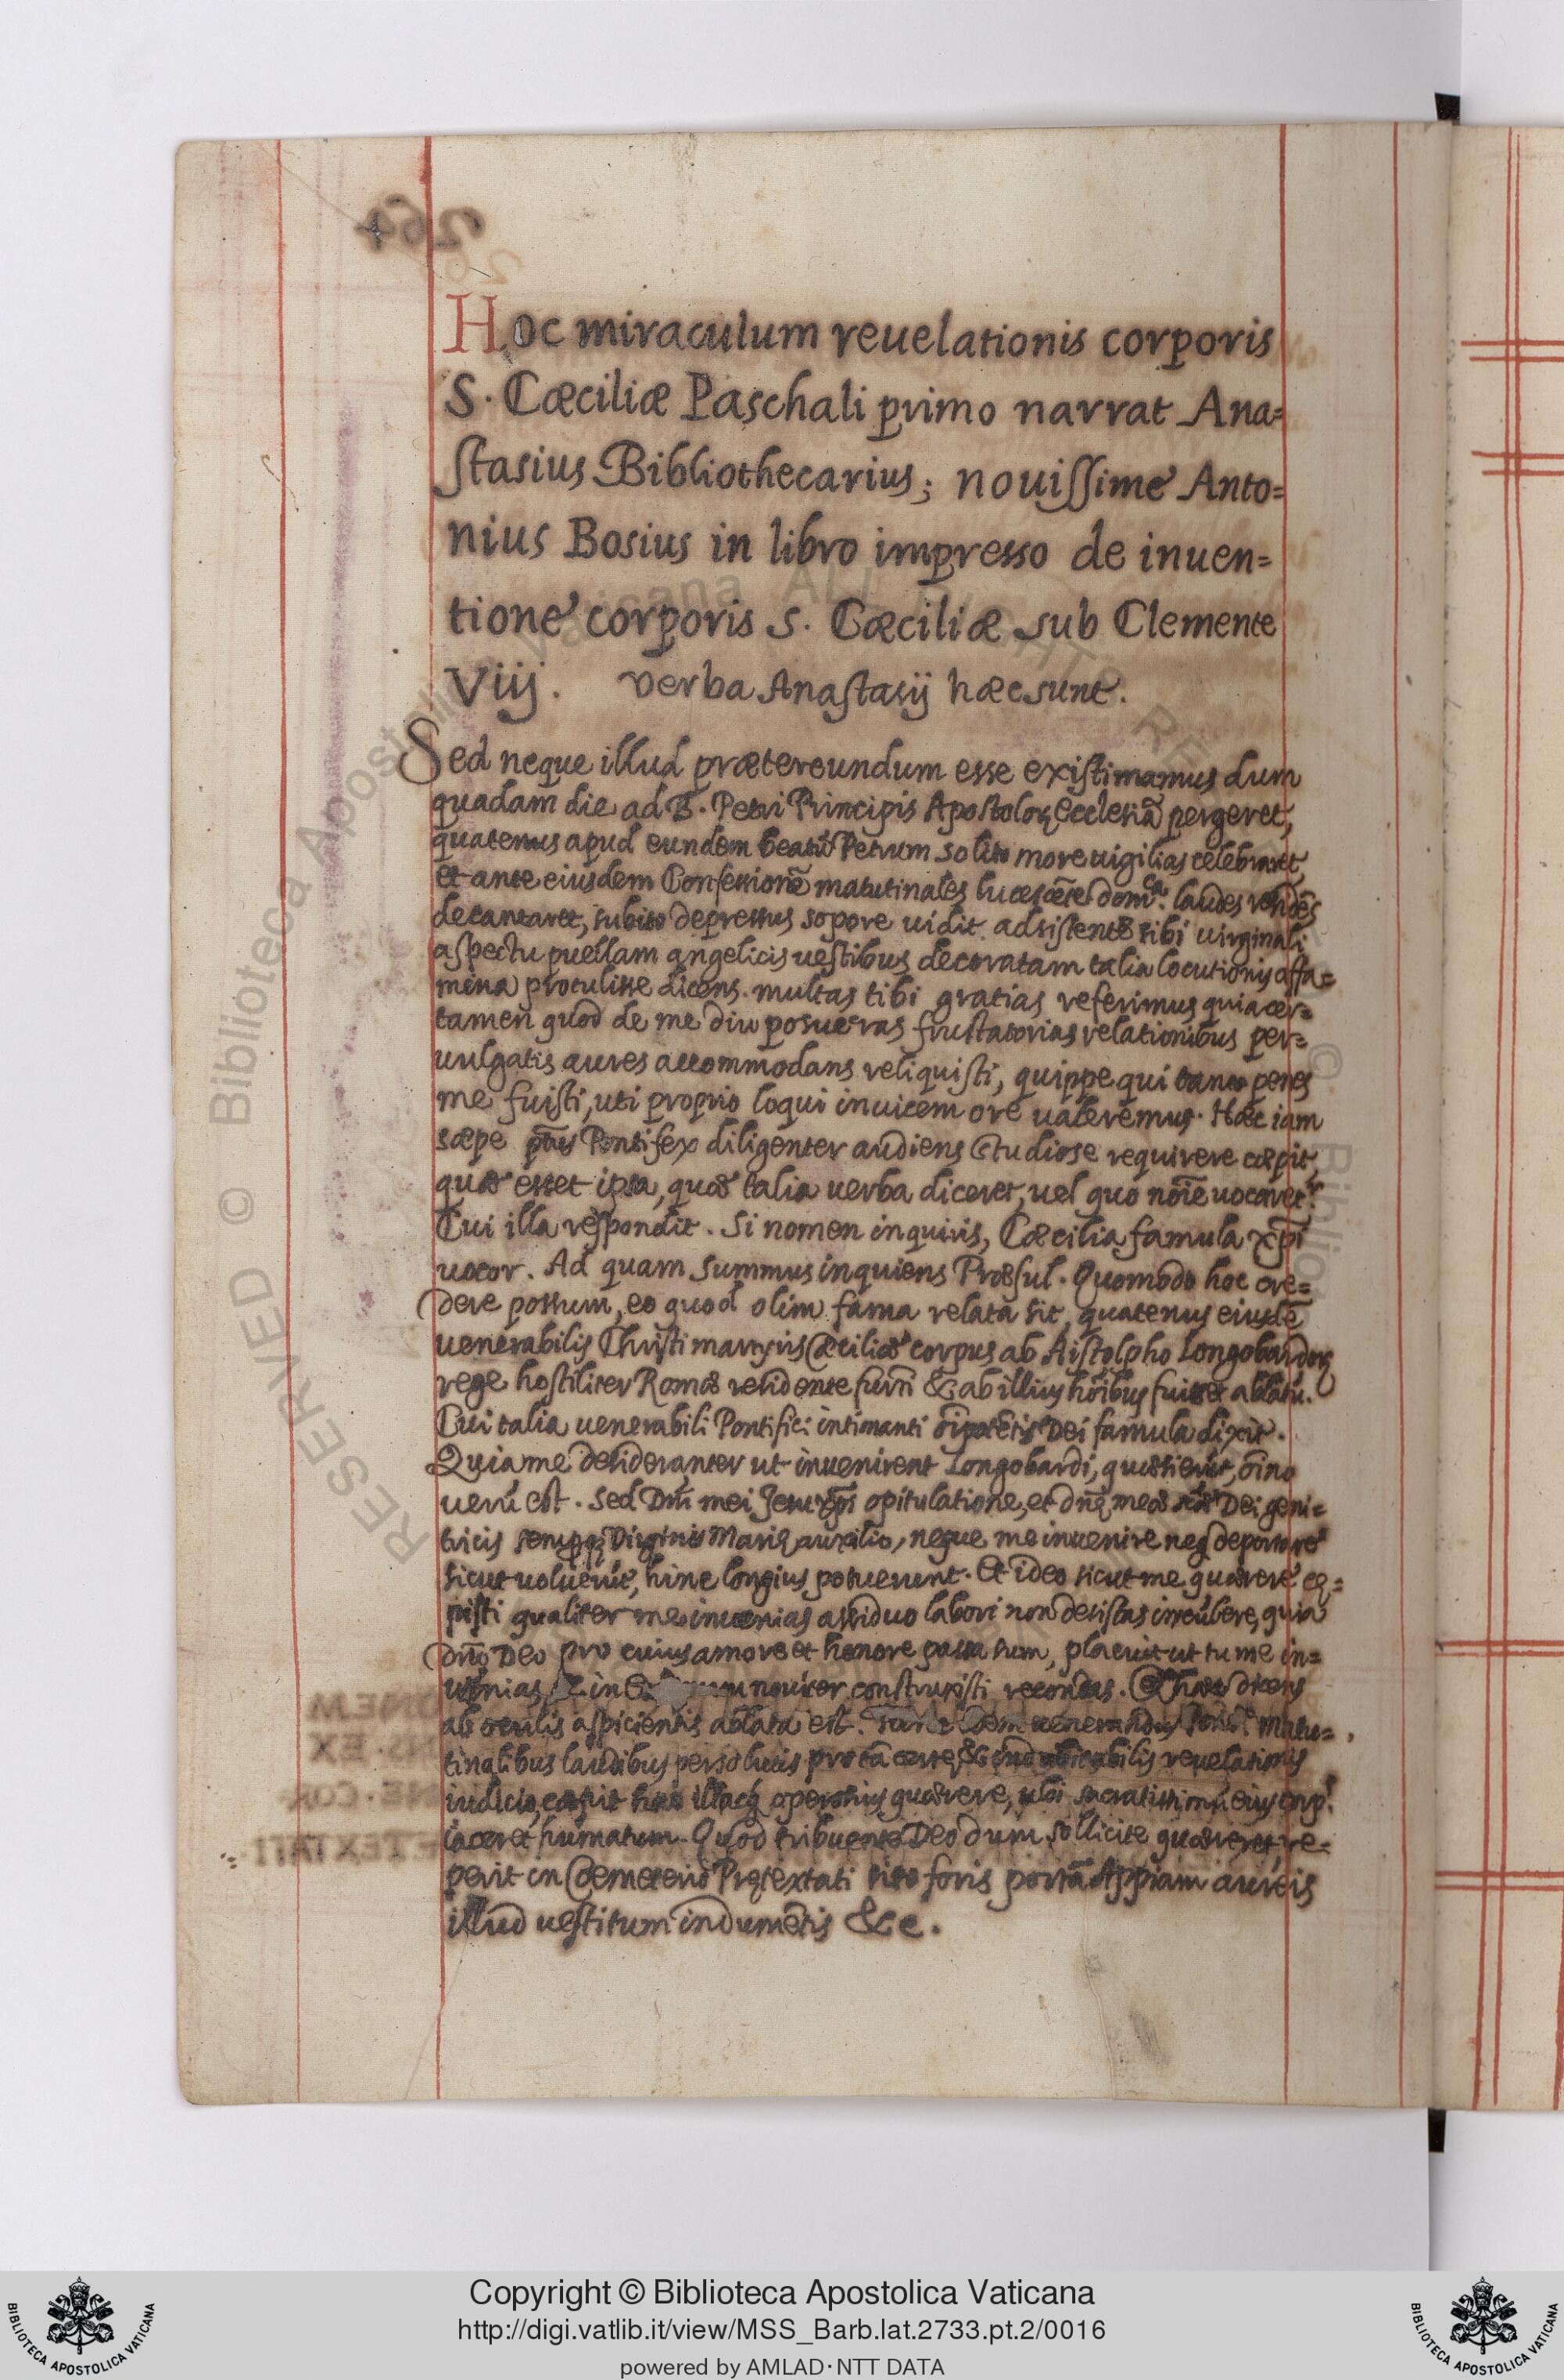 Hoc miraculum reuelationis corporis
S. Cæciliæ Paschali primo narrat Ana=
stasius Bibliothecarius; nouissime Anto=
nius Bosius in libro impresso de inuen=
tione corporis S. Cæciliæ sub Clemente
Viij. Verba Anastasij hæc sunt.
Sed neque illud prætereundum esse existimamus dum
quadam die ad B. Petri Principis Apostoloꝝ ecclesiã pergeret,
quatenus apud eundem beatũ Petrum solito more uigilias celebraret,
et ante eiusdem Confessionẽ matutinales lucescẽte domcᵃ. laudes
decantaret, subito depressus sopore uidit adsistente sibi uirginali
aspectu puellam angelicis uestibus decoratam talia locutionis affa=
mina protulisse dicens. multas tibi gratias referimus quia cer=
tamen quod de me diu posueras frustatorias relationibus per=
uulgatis aures accommodans reliquisti, quippe qui tanto penes
me fuisti, uti proprio loqui inuicem ore ualeremus. Hæc iam
sæpe Pontifex diligenter audiens studiose requirere cœpit,
quæ esset ipsa, quæ talia uerba diceret, uel quo nõie uocaret.
Cui illa respondit. Si nomen inquiris, Cæcilia famula xp̃i
uocor. Ad quam summus inquiens Præsul. Quomodo hoc cre=
dere possum, eo quod olim fama relata sit, quatenus eiusdẽ
uenerabilis Christi martyris Cæciliæ corpus ab Aistolpho Longobardoꝝ
rege hostiliter Romæ residente furti & ab illius hõibus fuisset ablatũ.
Cui talia uenerabili Pontifici intimanti õipotẽtis Dei famula dixit.
Quia me desideranter ut inuenirent Longobardi, quæsierũt, õino
uerũ est. Sed Dñi mei Jesu xp̃i opitulatione, et dñę meæ Dei geni=
tricis semperq; Virginis Marię auxilio, neque me inuenire neq; deportare
sicut uoluerũt, hinc longius potuerunt. Et ideo sicut me quærere cę=
pisti qualiter me inuenias assiduo labori non desistas incũbere, quia
dño Deo pro cuius amore et honore passa sum, placuit ut tu me in=
uenias, & in nouiter construxisti recondas. Et hæc dicens
ab oculis aspicientis ablata est. uenerandus matu=
tinalibus laudibus persolutis reuelationis
iudicio, cœpit hac illacq; quærere, ubi sacratissimum eius corpꝰ
iaceret humatum. Quod tribuente Deo dum sollicite quæreret, re=
perit in Cœmeterio Prętextati sito foris portã Appiam aureis
illud uestitum indumẽtis &c.
Copyright © Biblioteca Apostolica Vaticana
http://digi.vatlib.it/view/MSS_Barb.lat.2733.pt.2/0016
powered by AMLAD·NTT DATA
BIBLIOTECA APOSTOLICA VATICANA
BIBLIOTECA APOSTOLICA VATICANA